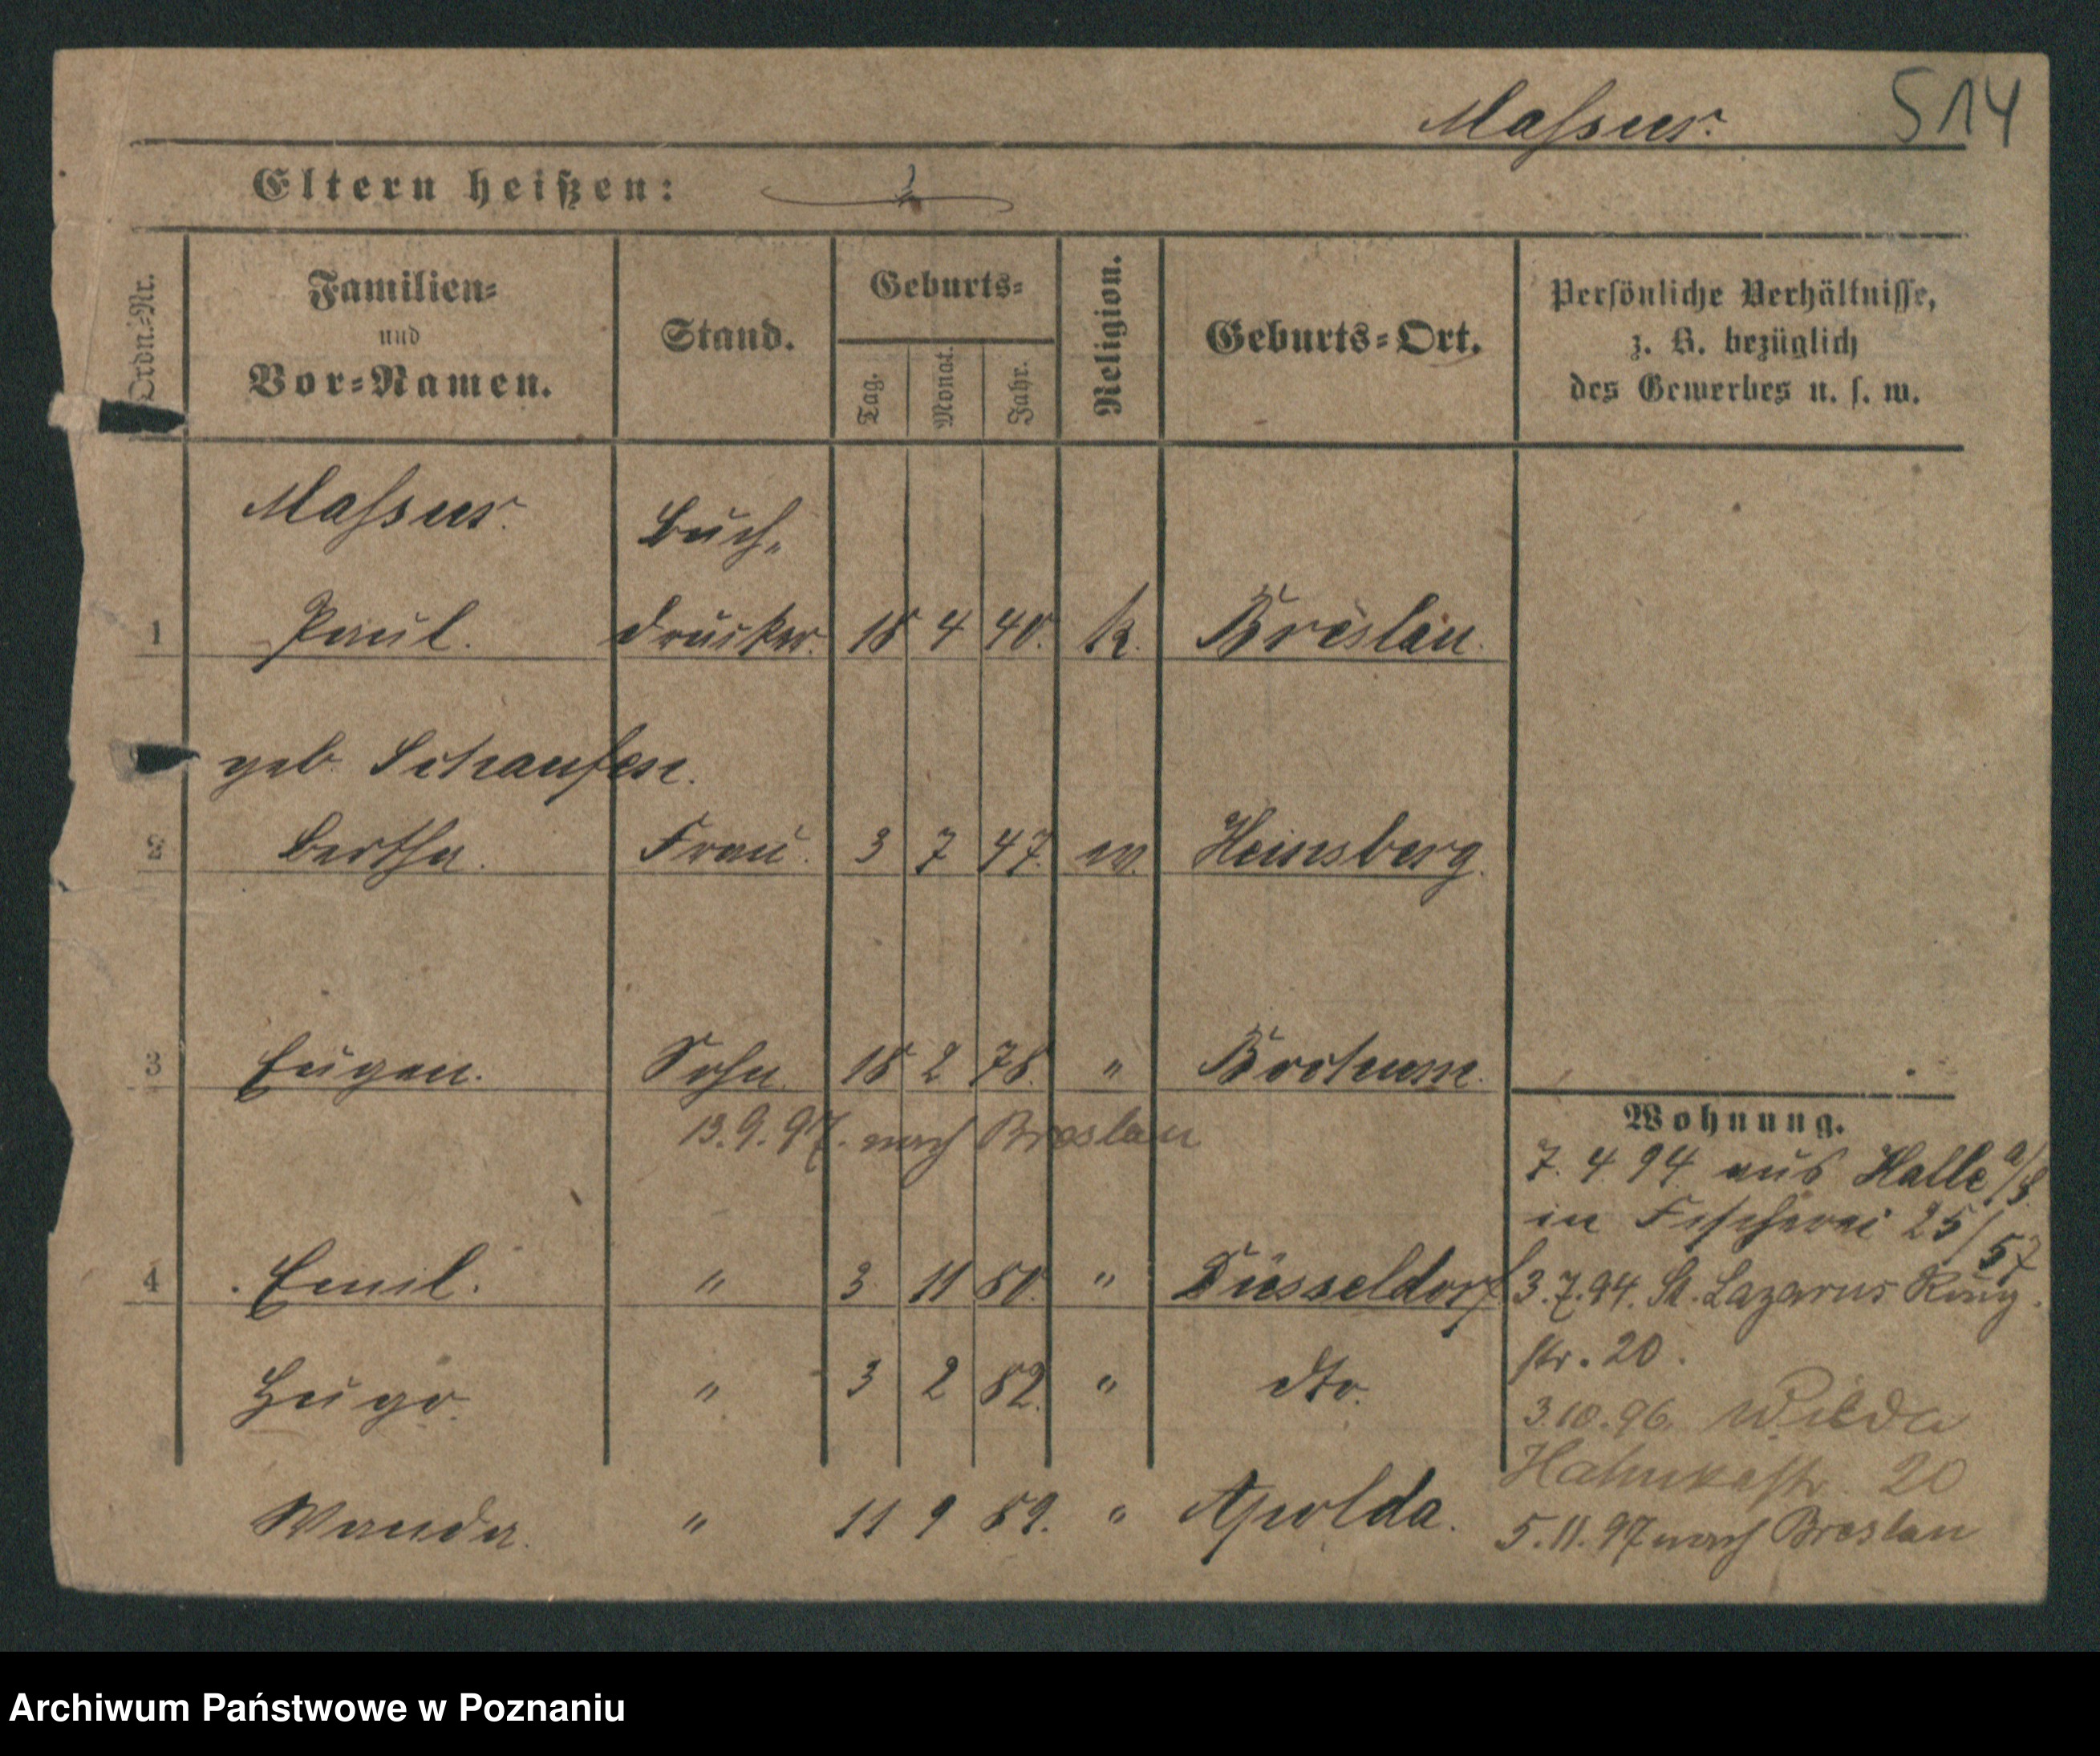 Massur. 514
Eltern heißen:
Ordn.-Nr. Familien- und Vor-Namen. Stand. Geburts- Tag. Monat. Jahr. Religion. Geburts-Ort. Persönliche Verhältnisse, z. B. bezüglich des Gewerbes u. s. w.
Massur. Buch-
1 Paul. drucker. 18 4 40. k. Breslau.
geb. Schaufen.
2 Bertha. Frau. 3 7 47. ev. Heinsberg.
3 Eugen. Sohn 18 2 78. " Bochum.
13.9.97. nach Breslau
4 Emil. " 3 11 80. " Düsseldorf.
Hugo. " 3 2 82. " dto.
Wanda. " 11 9 89. " Apolda.
Wohnung.
7. 4. 94. aus Halle a/S.
in Fischerei 25/57
3.7.94. St. Lazarus Ring-
str. 20.
3.10.96. Wilda
20
5.11.97 nach Breslau
Archiwum Państwowe w Poznaniu